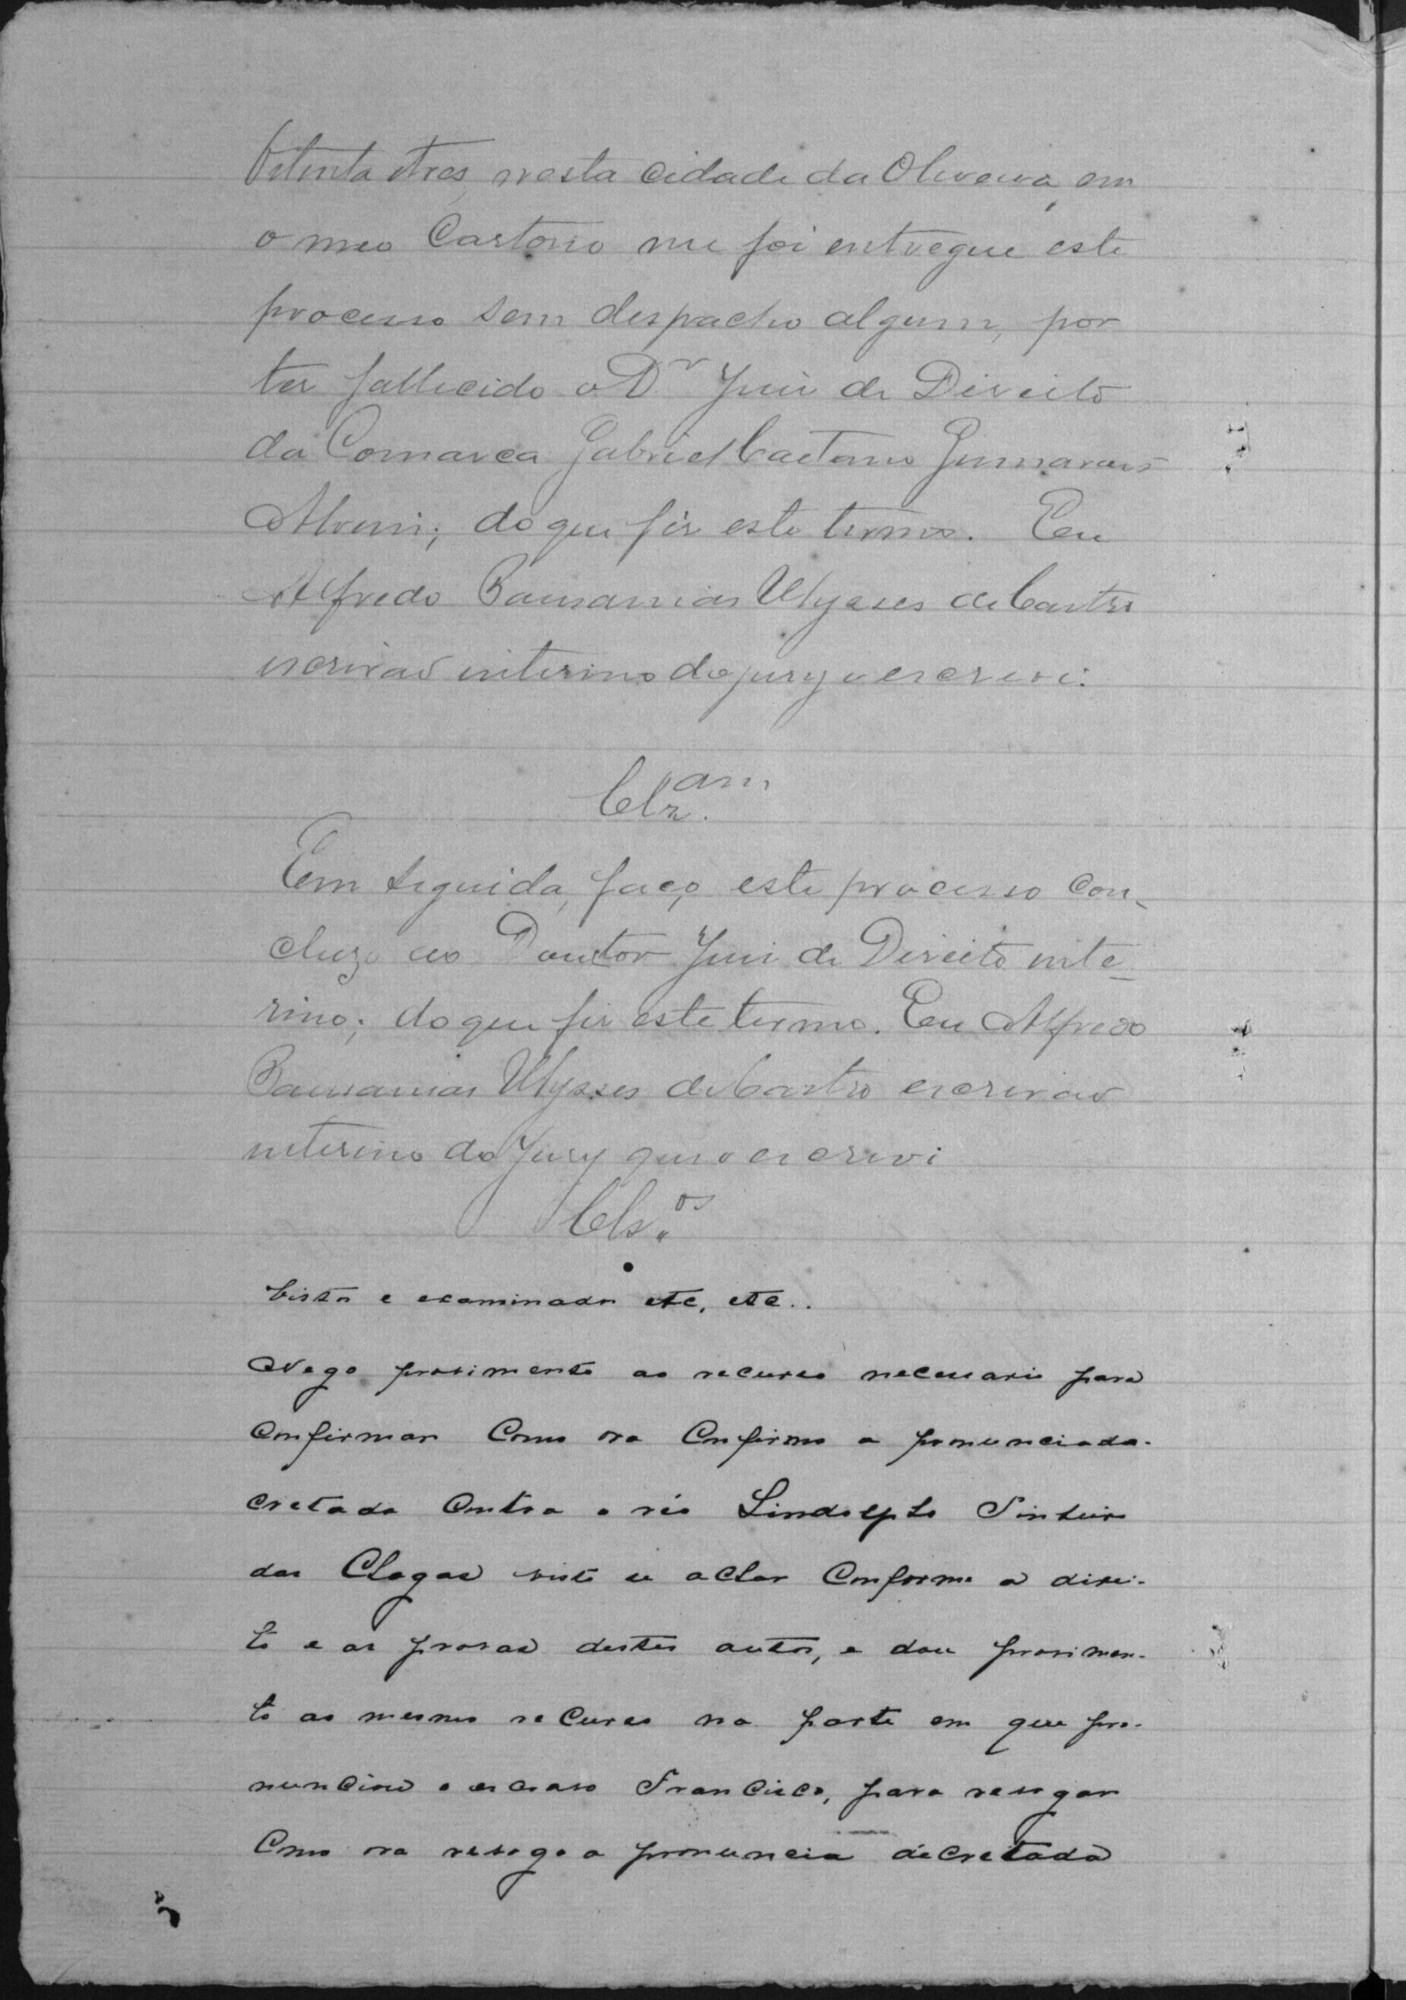 Setenta e tres, nesta cidade da Oliveira, em
o meo Cartorio me foi entregue este
processo sem despacho algum, por
ter fallecido o Dr Juis de Direito
da Comarca Gabriel Caetano Guimaraes
Alvim; do que fis este termo. Eu
Alfredo Pausanias Ulysses de Castro
escrivão interino do jury o escrevi.
Clzam.
Em seguida, faço este processo con-
cluzo ao Doutor Juis de Direito inte-
rino; do que fis este termo. Eu Alfredo
Pausanias Ulysses de Castro escrivão
interino do Jury que o escrevi
Clsos.
Visto e examinado etc, etc..
Nego provimento ao recurso necessario para
confirmar como ora confirmo a pronuncia de-
cretada contra o réo Lindolpho Pinheiro
das Chagas visto se achar conforme a direi-
to e as provas destes autos, e dou provimen-
to ao mesmo recurso na parte em que pro-
nunciou o escravo Francisco, para revogar
como ora revogo a pronuncia decretada